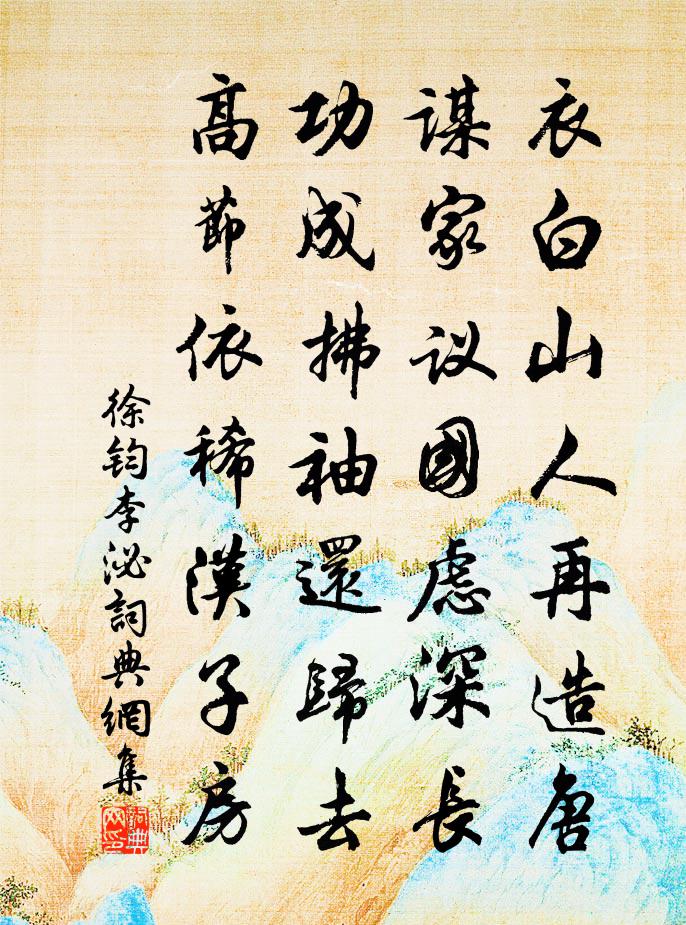 衣白山人再造唐
谋家议國慮深長
功成拂袖還歸去
高節依稀漢子房
徐钧李泌詞典網集
詞典网印